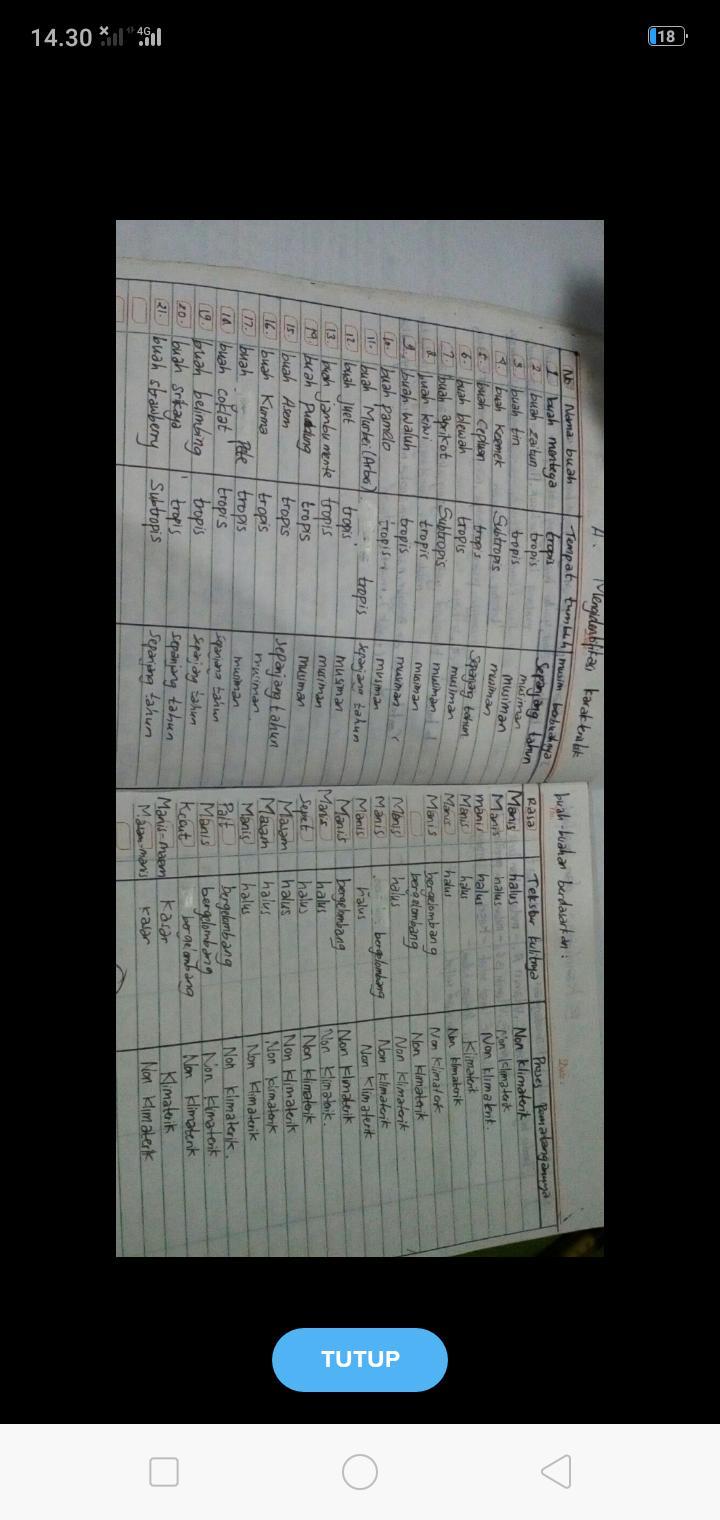 14.30
4G
18
A. Mengidentifikasi karakteristik buah-buahan berdasarkan :
No Nama buah Tempat tumbuh musim berbuahnya Rasa Tekstur kulitnya Proses Pematangannya
1. buah mentega tropis Sepanjang tahun Manis halus Non klimaterik
2. buah zaitun tropis musiman Manis halus Non klimaterik
3. buah tin tropis musiman manis halus Non klimaterik
4. buah Kesemek Subtropis musiman Manis halus Klimaterik
5. buah Ceplukan tropis Sepanjang tahun Manis halus Non klimaterik
6. buah blewah tropis musiman Manis bergelombang Non klimaterik
7. buah aprikot Subtropis musiman bergelombang Non klimaterik
8. buah kiwi tropis musiman Manis halus Non klimaterik
9. buah waluh tropis musiman Manis bergelombang Non klimaterik
10. buah pamelo tropis musiman Manis halus Non klimaterik
11. buah Murbei (Arbei) tropis sepanjang tahun Manis bergelombang Non klimaterik
12. buah juet tropis musiman Manis halus Non klimaterik
13. buah jambu mente tropis musiman Sepet halus Non klimaterik
14. buah tropis musiman Masam halus Non klimaterik
15. buah Asem tropis sepanjang tahun Masam halus Non klimaterik
16. buah Kurma tropis musiman Manis halus Non klimaterik
17. buah Pete tropis musiman Pait bergelombang Non klimaterik
18. buah Coklat tropis sepanjang tahun Manis bergelombang Non klimaterik
19. buah belimbing tropis sepanjang tahun bergelombang Non klimaterik
20. buah Srikaya tropis sepanjang tahun Manis-masam kasar Klimaterik
21. buah strawberry Subtropis sepanjang tahun Masam-manis kasar Non klimaterik
TUTUP